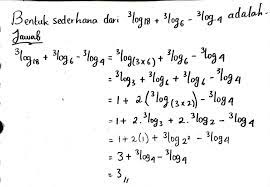 Bentuk sederhana dari ³log 18 + ³log 6 - ³log 4 adalah.
Jawab
³log 18 + ³log 6 - ³log 4 = ³log (3×6) + ³log 6 - ³log 4
= ³log 3 + ³log 6 + ³log 6 - ³log 4
= 1 + 2 (³log (3×2)) - ³log 4
= 1 + 2 · ³log 3 + 2 · ³log 2 - ³log 4
= 1 + 2(1) + ³log 2² - ³log 4
= 3 + ³log 4 - ³log 4
= 3 //